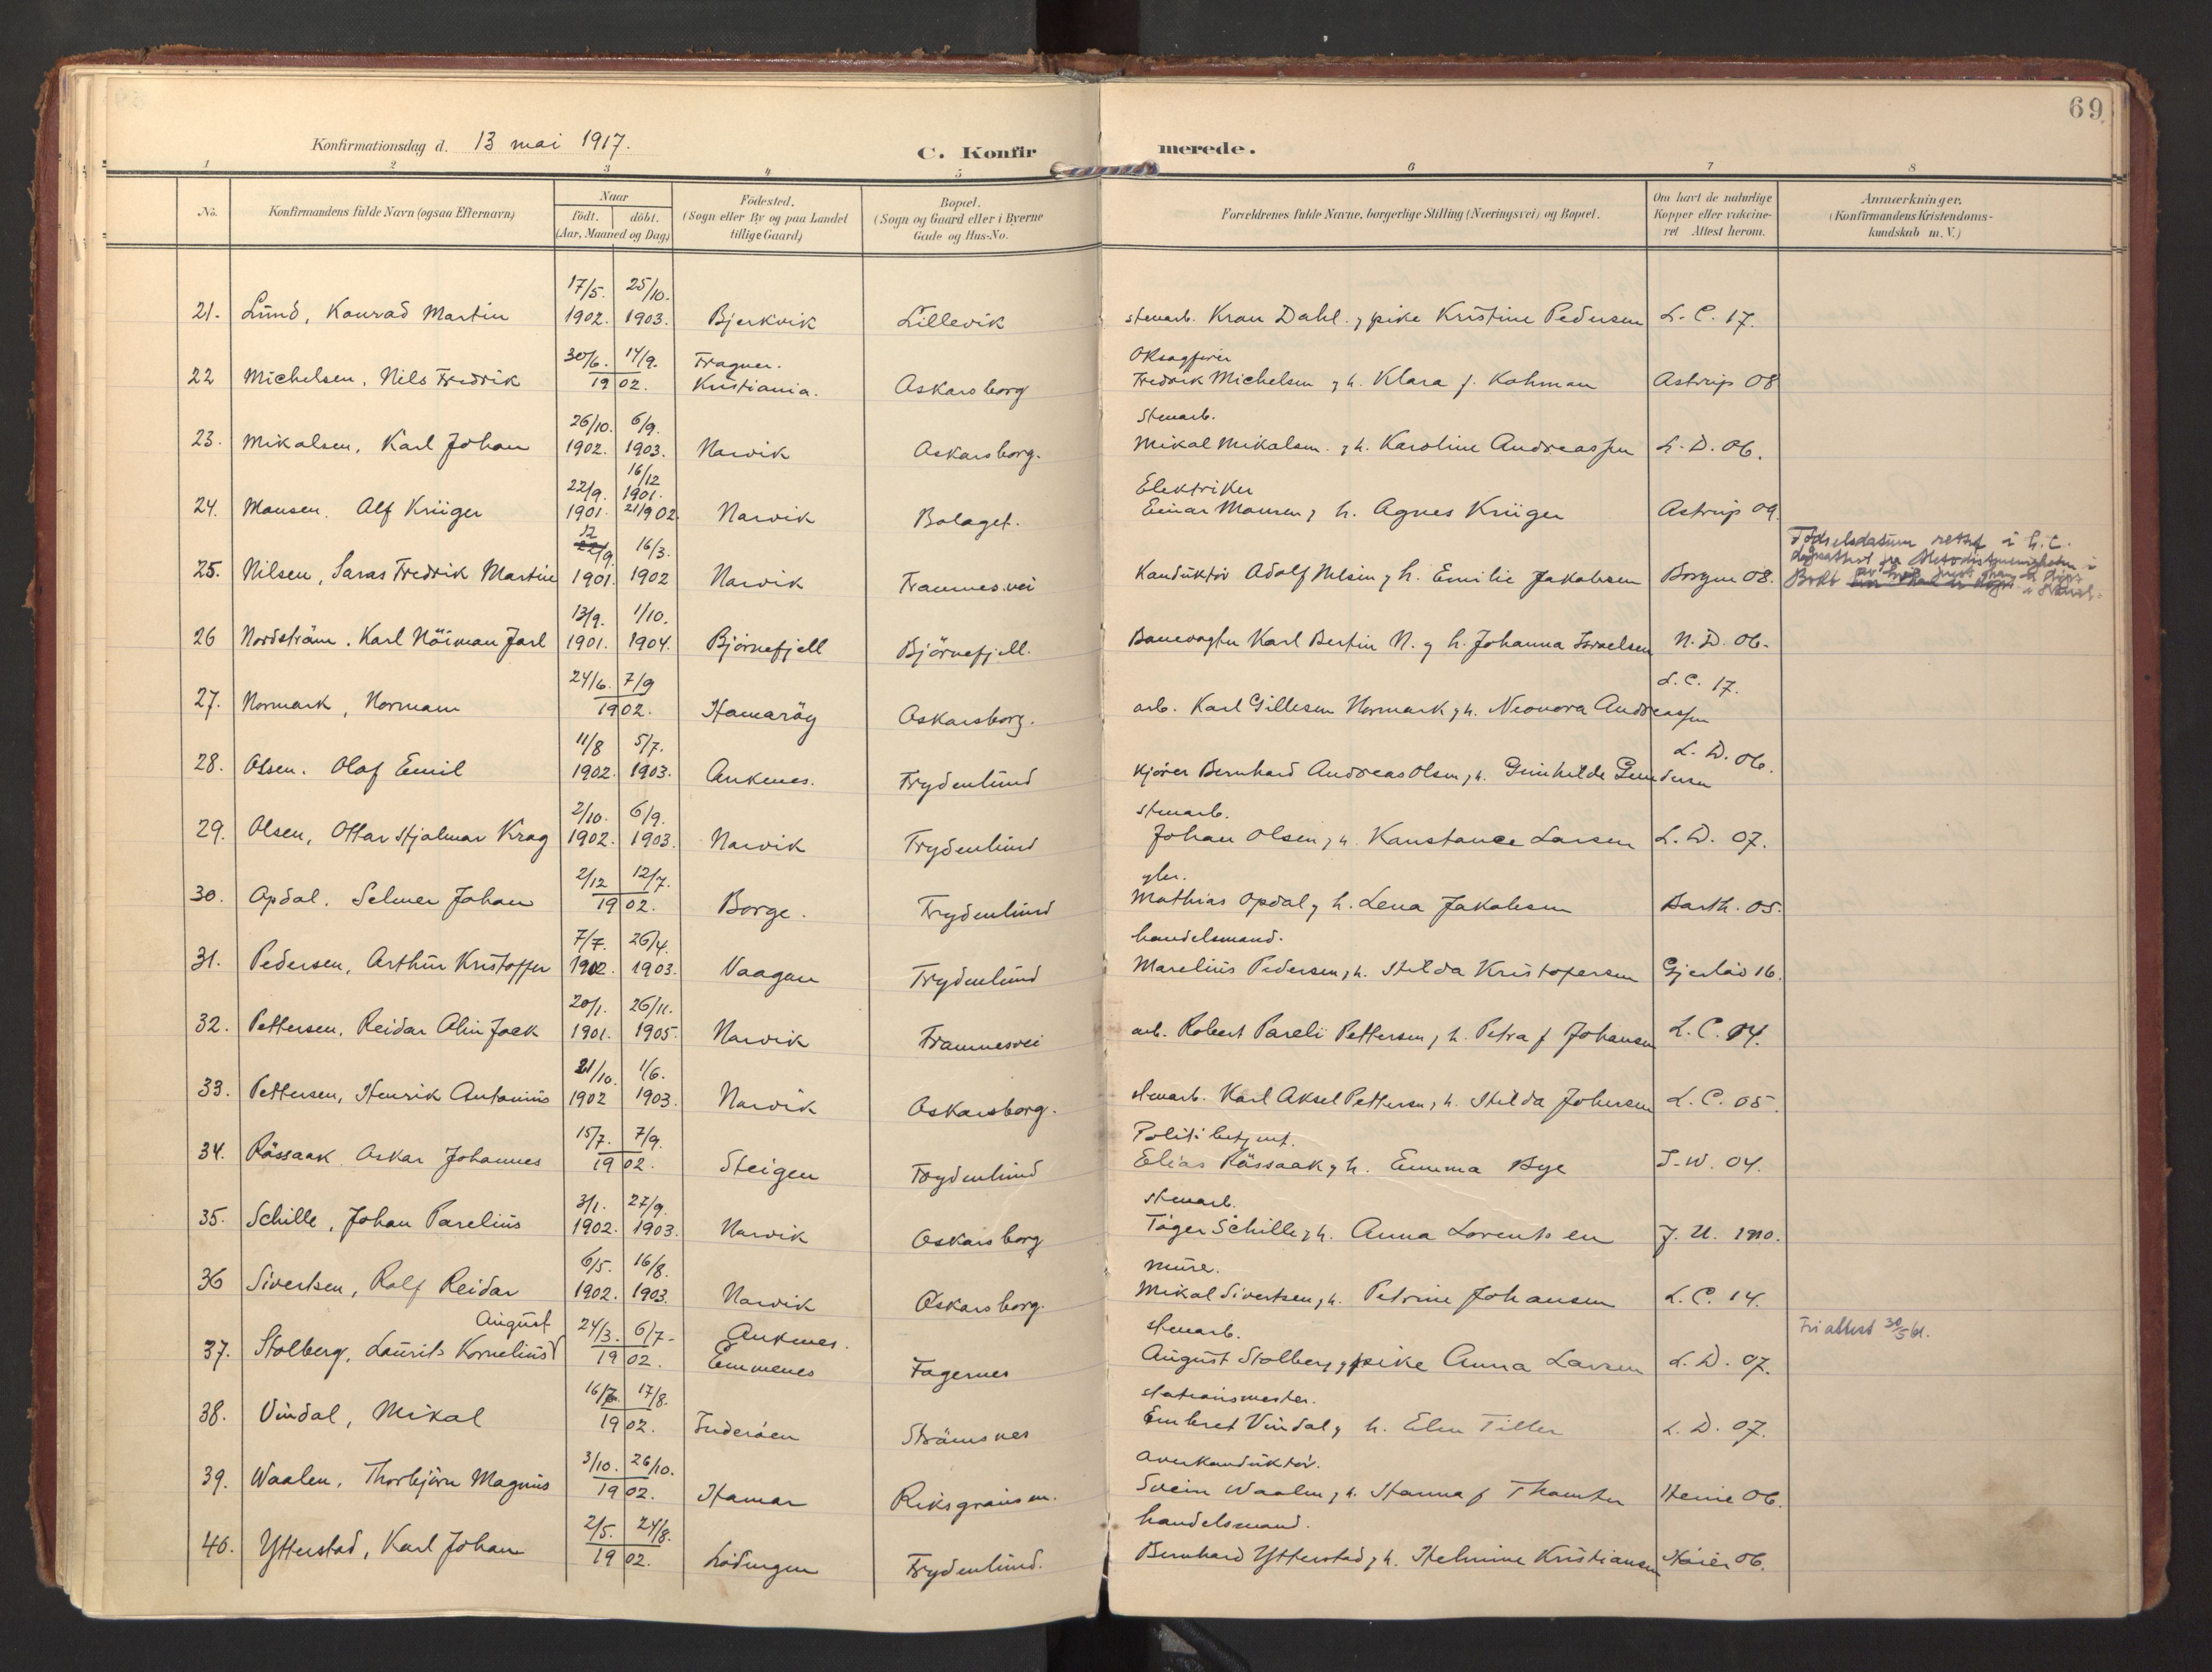 69
Konfirmationsdag d. 13 mai 1917.
C. Konfirmerede.
1 2 3 4 5 6 7 8
No.
Konfirmandens fulde Navn (ogsaa Efternavn)
Naar
födt. döbt.
(Aar, Maaned og Dag)
Födested.
(Sogn eller By og paa Landet
tillige Gaard)
Bopæl.
(Sogn og Gaard eller i Byerne
Gade og Hus-No.
Forældrenes fulde Navne, borgerlige Stilling (Næringsvei) og Bopæl.
Om havt de naturlige
Kopper eller vakcine-
ret Attest herom.
Anmærkninger.
(Konfirmandens Kristendoms-
kundskab m. V.)
17/5. 25/10.
21. Lund, Konrad Martin 1902. 1903. Bjerkvik Lillevik stenarb. Kran Dahl. g pike Kristine Pedersen L. C. 17.
30/6. 14/9. Fragner. Oksagfører
22 Michelsen, Nils Fredrik 1902. Kristiania. Oskarsborg Fredrik Michelsen g h. Klara f. Kohman Astrup 08
26/10. 6/9. Stenarb.
23. Mikalsen, Karl Johan 1902. 1903. Narvik Oskarsborg. Mikal Mikalsen. g h. Karoline Andreassen L. D. 06.
16/12
22/9. 1901. Elektriker
24. Monsen. Alf Krüger 1901. 21/9 02. Narvik Bolaget. Einar Monsen g h. Agnes Krüger Astrup 09.
12
22/9 16/3. Fødselsdatum rettet i h.t.
25. Nilsen, Saras Fredrik Martin 1901. 1902 Narvik Framnes.vei Konduktør Adolf Nilsen g h. Emilie Jakobsen Borgen 08.
13/9. 1/10.
26 Nordström. Karl Nöiman Jarl 1901. 1904. Bjørnefjell Björnefjell. Banevogter Karl Bertin N. g h. Johanna Israelsen N. D. 06.
24/6. 7/9 L. C. 17.
27. Normark, Normann 1902. Hamarøy Oskarsborg. arb. Karl Gillesen Normark g h. Neonora Andreassen
11/8 5/7. L. D. 06.
28. Olsen. Olaf Emil 1902. 1903. Ankenes. Frydenlund kjører Bernhard Andreas Olsen g h. Gunhilde Gundersen
2/10. 6/9. stenarb.
29. Olsen, Ottar Hjalmar Krag 1902. 1903. Narvik Frydenlund Johan Olsen g h. Konstance Larsen L. D. 07.
2/12 12/7.
30. Opdal. Selmer Johan 1902. Borge. Frydenlund Mathias Opdal g h. Lena Jakobsen Barth. 05.
7/7. 26/4. handelsmand.
31. Pedersen, Arthur Kristoffer 1902. 1903. Vaagan Frydenlund Marelius Pedersen g h. Hilda Kristofersen Gjerløv 16.
20/1. 26/11.
32. Pettersen, Reidar Alin Jack 1901. 1905. Narvik Framnesvei arb. Robert Pareli Pettersen g h. Petra f Johansen L. C. 04.
21/10. 1/6.
33. Pettersen, Henrik Antonius 1902 1903. Narvik Oskarsborg. stenarb. Karl Aksel Pettersen g h. Hilda Johnsen L. C. 05.
15/7. 7/9. Politibetjent.
34. Råssaak. Oskar Johannes 1902. Steigen Frydenlund Elias Råssaak g h. Emma Bye J. W. 04.
3/1. 27/9. stenarb.
35. Schille, Johan Parelius 1902. 1903. Narvik Oskarsborg Tøger Schille g h. Anna Lorentsen J. U. 1910.
6/5. 16/8. murer.
36 Sivertsen, Rolf Reidar 1902. 1903. Narvik Oskarsborg. Mikal Sivertsen g h. Petrine Johansen L. C. 14.
August 24/3. 6/7. Ankenes. stenarb. Fri attest 30/5 61.
37. Stolberg, Laurits Kornelius 1902. Emmenes Fagernes August Stolberg g pike Anna Larsen L. D. 07.
16/7. 17/8. stationsmester.
38. Vindal, Mikal 1902. Inderøen Strömsnes Embret Vindal g h. Elen Tiller L. D. 07.
3/10. 26/10. overkonduktør.
39. Waalen, Thorbjörn Magnus 1902. Hamar Riksgränsen. Svein Waalen g h. Hanna f Thomter Heine 06.
2/5. 24/8. handelsmand.
40. Ytterstad, Karl Johan 1902. Lødingen Frydenlund. Bernhard Ytterstad g h. Helmine Kristiansen Høier 06.